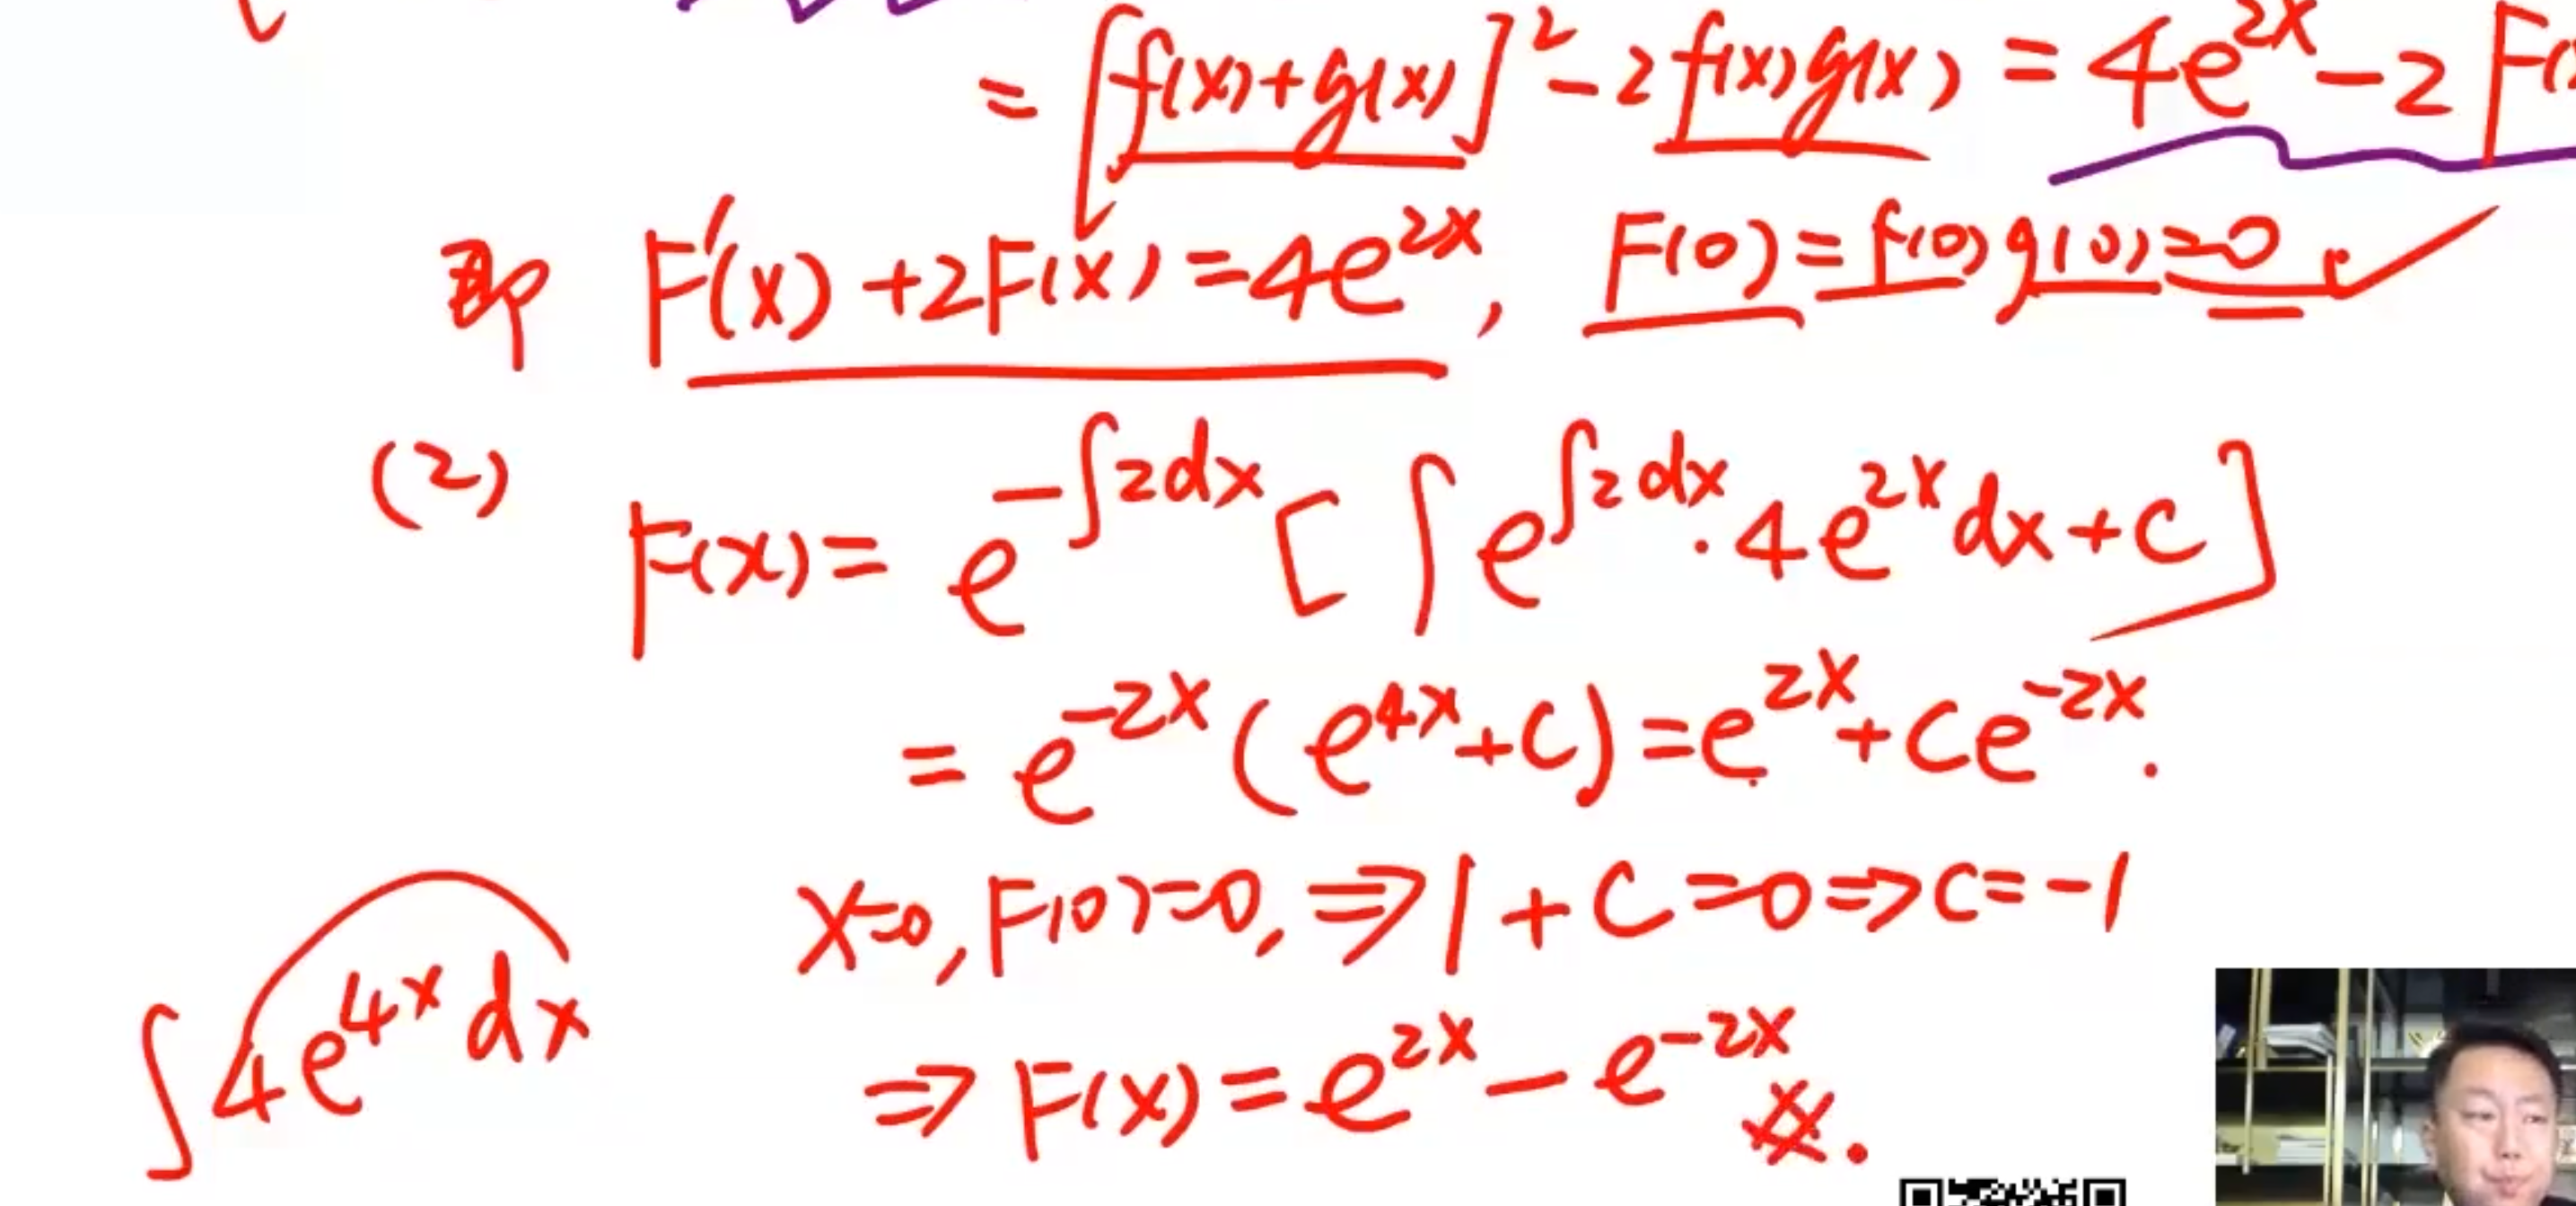 = [f(x)+g(x)]² - 2f(x)g(x) = 4e^{2x} - 2F(x
即 F'(x)+2F(x)=4e^{2x}, F(0)=f(0)g(0)=0
(2) F(x)= e^{-∫2dx}[∫e^{∫2dx}·4e^{2x}dx+C]
= e^{-2x}(e^{4x}+C)=e^{2x}+Ce^{-2x}.
x=0, F(0)=0, ⇒1+C=0⇒C=-1
∫4e^{4x}dx
⇒F(x)=e^{2x}-e^{-2x} #.